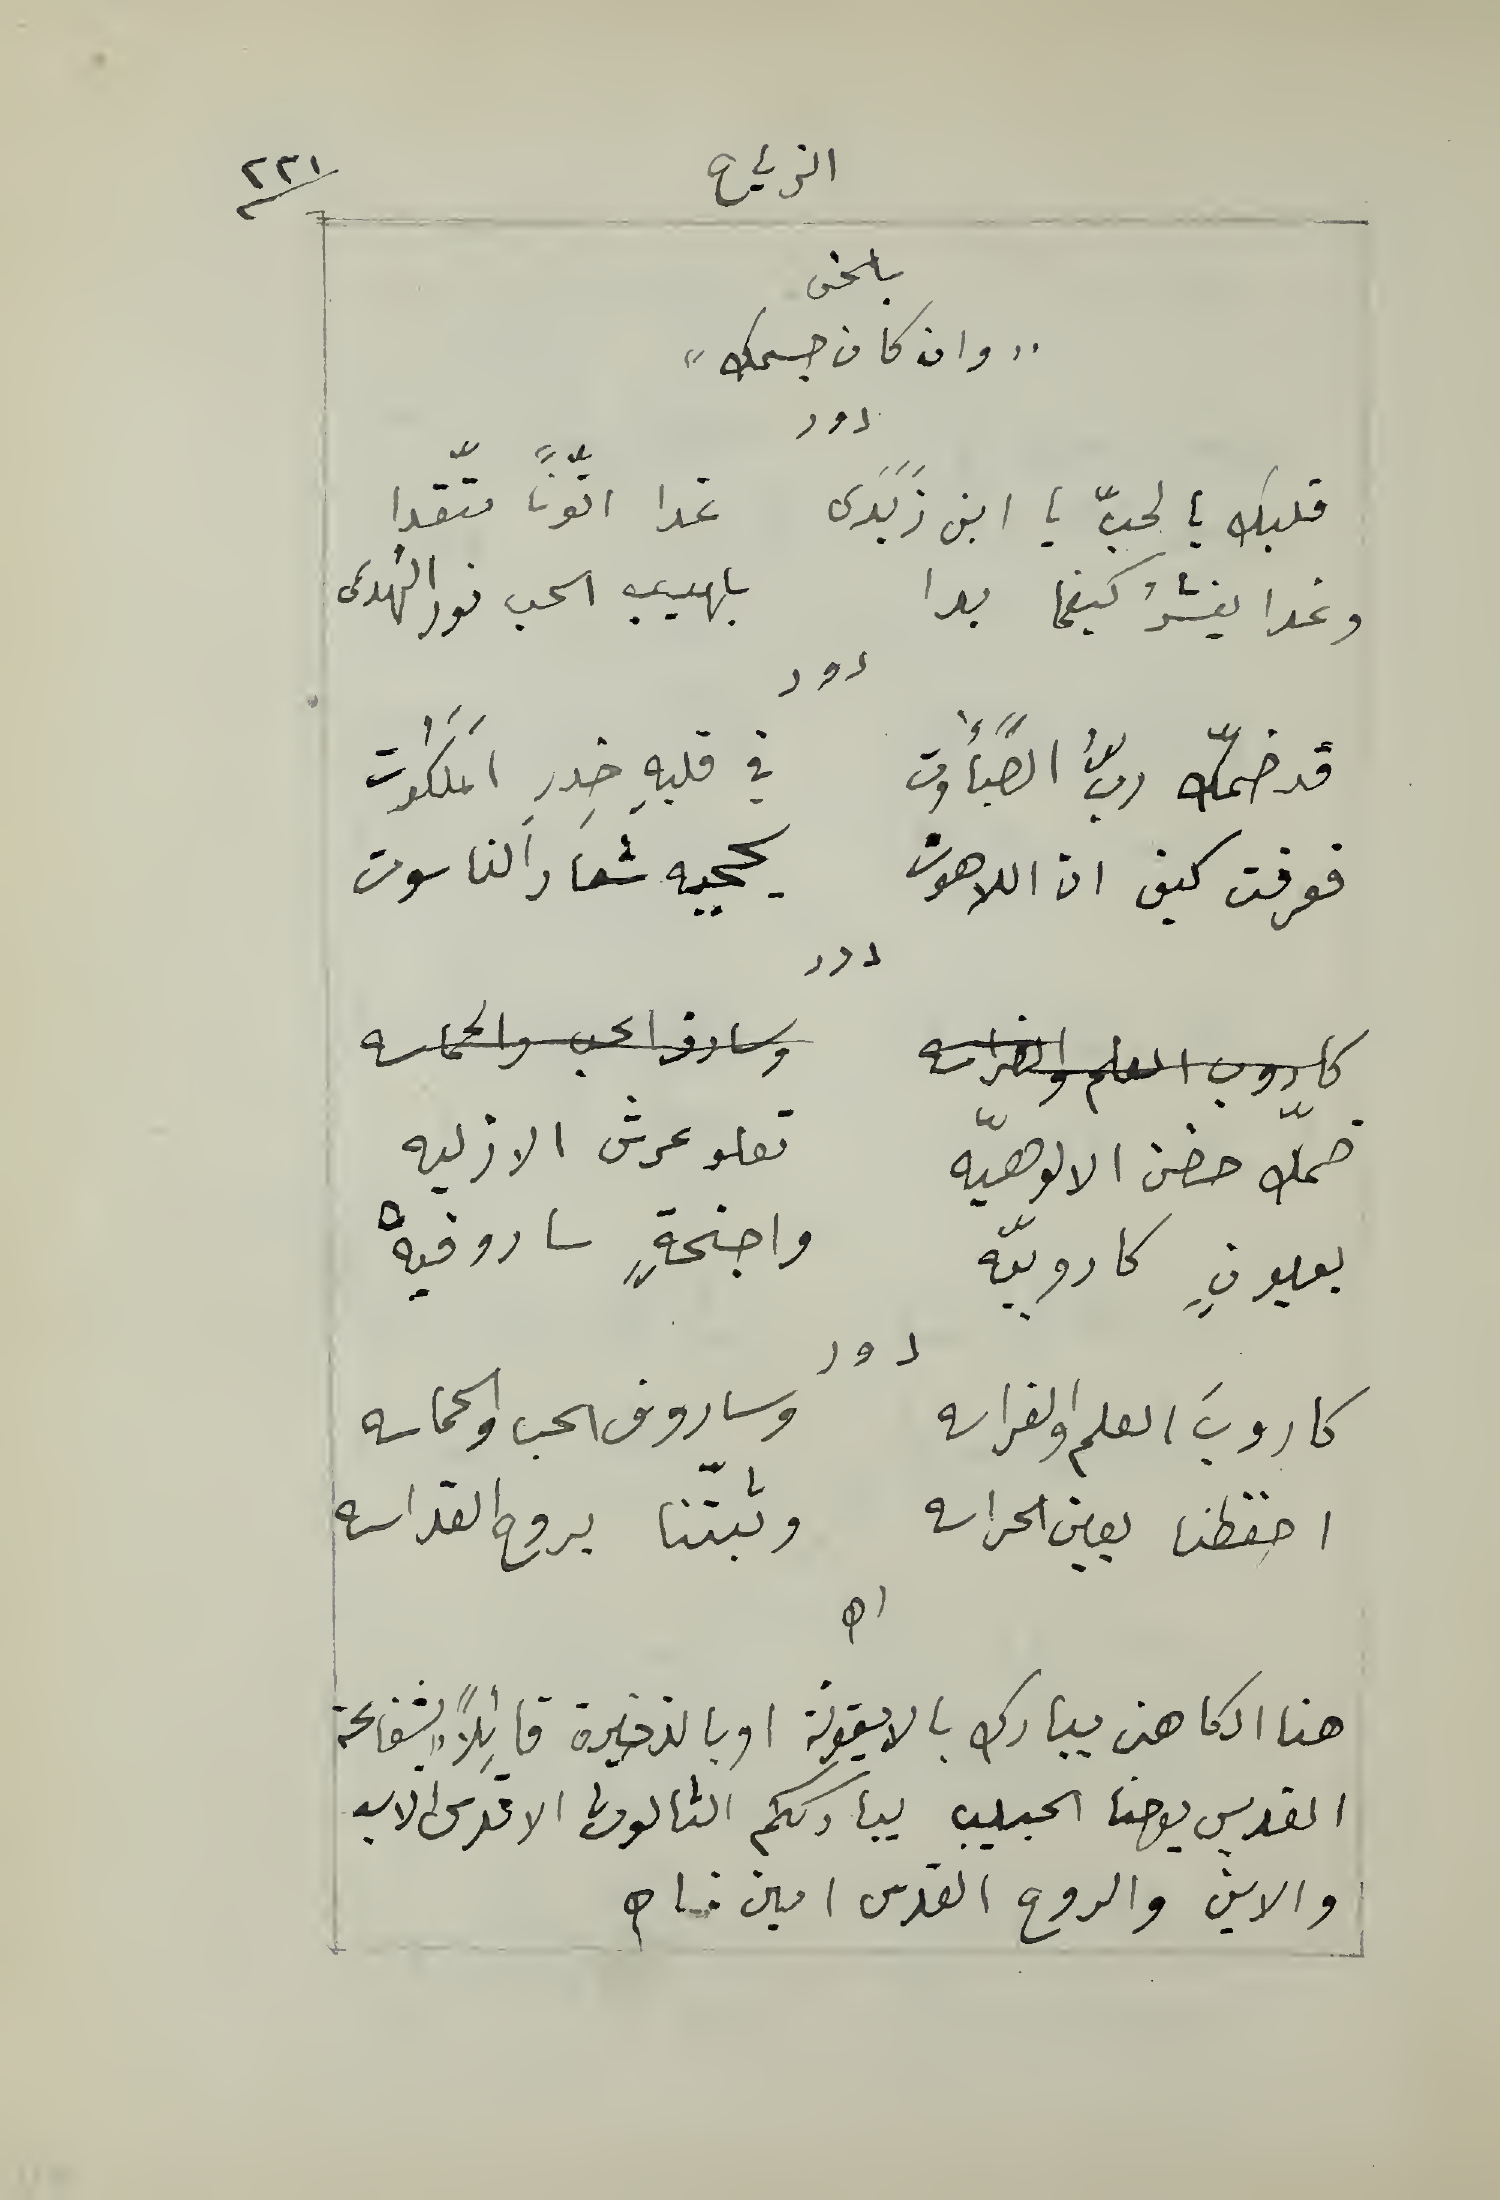 الزياح
٢٢١
بلحن
"وان كان جسمك"
دور
قلبك بالحبّ يا ابن زَبَدَى غدا اتّونًا متّقدا
وغدا ينشرُ كيفما بدا بلهيب الحب نور الهُدى
دور
قد ضمّك ربُّ الصَّبَأُوت في قلبهِ خِدرِ المَلَكُوت
فعرفت كيف ان اللاهوت يحجبه شعار الناسوت
دور
كاروب العلم والفراسه وساروف الحب والحماسه
ضمّك حضن الالوهيّه تعلو عرش الازليه
بعيونٍ كاروبيّه واجنحةٍ ساروفيه
دور
كاروبَ العلم والفراسه وساروف الحب والحماسه
احفظنا بعين الحراسه وثبّتنا بروح القداسه
اه
هنا الكاهن يبارك بالايقونة او بالذخيرة قائلاً بشفاعة
القديس يوحنا الحبيب يبارككم الثالوث الاقدس الاب
والابن والروح القدس امين